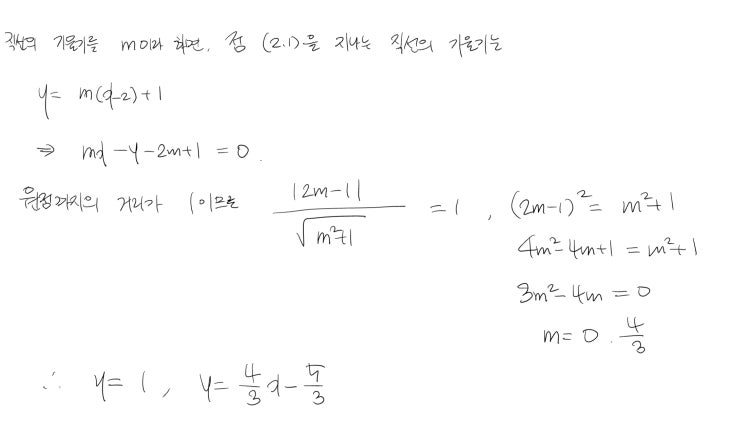 직선의 기울기를 m이라 하면, 점 (2,1)을 지나는 직선의 기울기는
y = m(x-2)+1
⇒ mx - y - 2m + 1 = 0.
원점까지의 거리가 1이므로 |2m-1| / √(m²+1) = 1, (2m-1)² = m²+1
4m²-4m+1 = m²+1
3m²-4m = 0
m = 0. 4/3
∴ y = 1, y = 4/3 x - 5/3